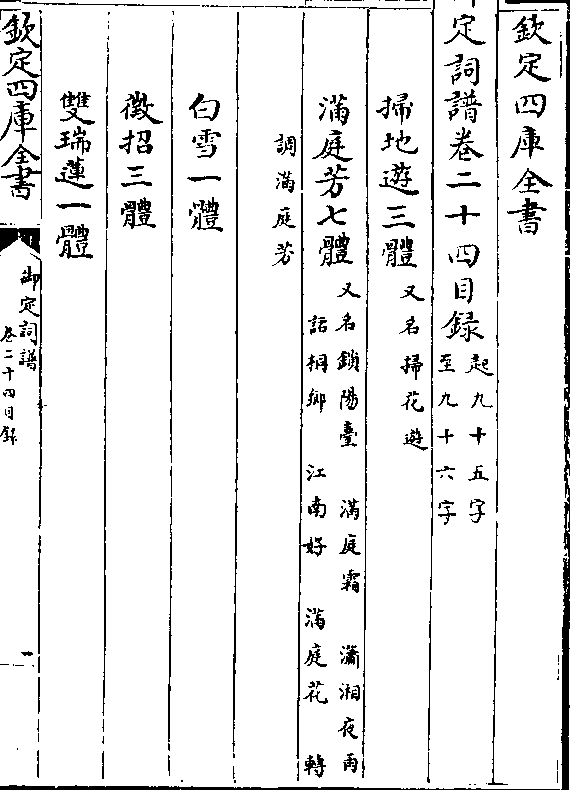 欽定四庫全書
定詞譜卷二十四目録
起九十五字
至九十六字
掃地遊三體
又名掃花遊
滿庭芳七體
又名鎖陽臺 滿庭霜 瀟湘夜雨
話桐鄉 江南好 滿庭花 轉
調滿庭芳
白雪一體
徵招三體
雙瑞蓮一體
欽定四庫全書
御定詞譜
卷二十四目録
一